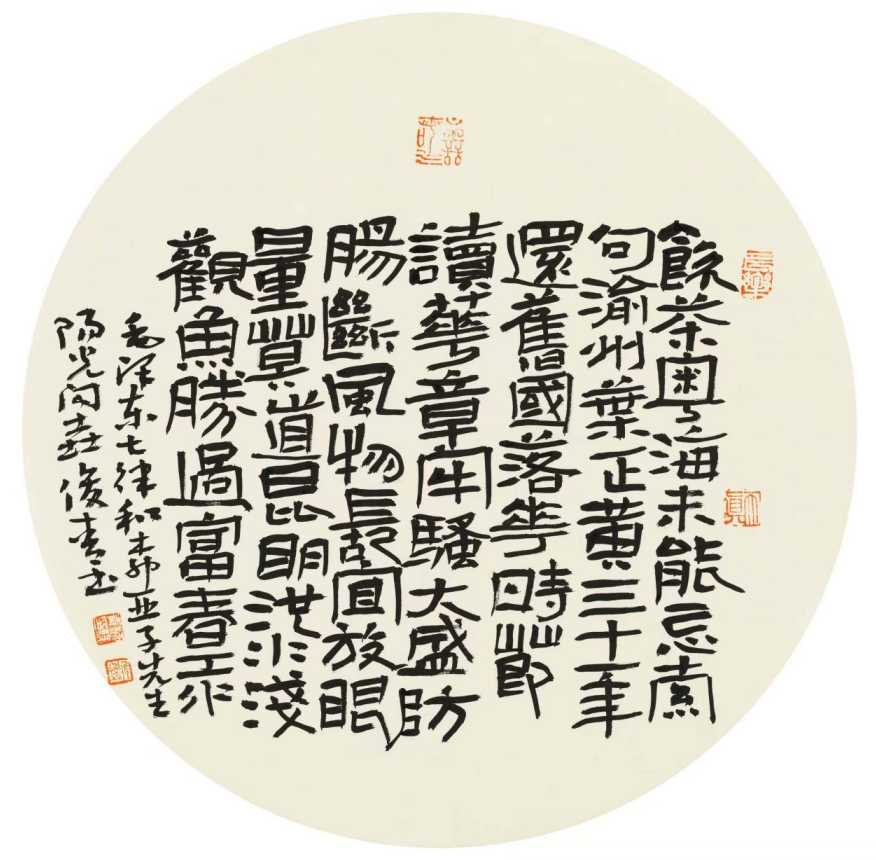 飲茶粵海未能忘索
句渝州葉正黃三十一年
還舊國落花時節
讀華章牢騷大盛防
腸斷風物長宜放眼
量莫道昆明池水淺
觀魚勝過富春江
毛泽东七律和柳亚子先生
陽光